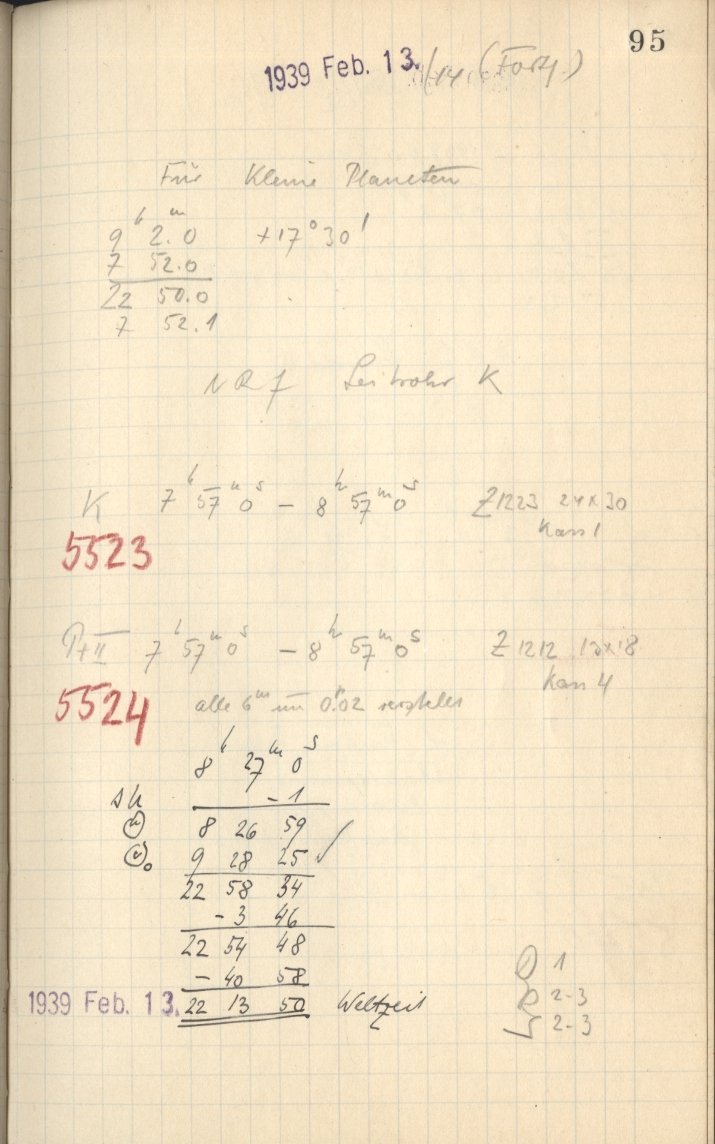 95
1939 Feb. 13./14 (Forts.)
Für Kleine Planeten
9h 2.m0 +17° 30'
7 52.0
22 50.0
7 52.1
NR 7 Leitrohr K
K 7h 57m 0s – 8h 57m 0s Z 1223 24x30
Kass 1
5523
7h 57m 0s – 8h 57m 0s Z 1212 13x18
Kass 4
5524 alle 6m um 0.02 verstellt
8h 27m 0s
– 1
8 26 59
9 28 25 ✓
22 58 34
– 3 46
22 54 48
– 40 58
1939 Feb. 13. 22 13 50 Weltzeit
1
2-3
2-3